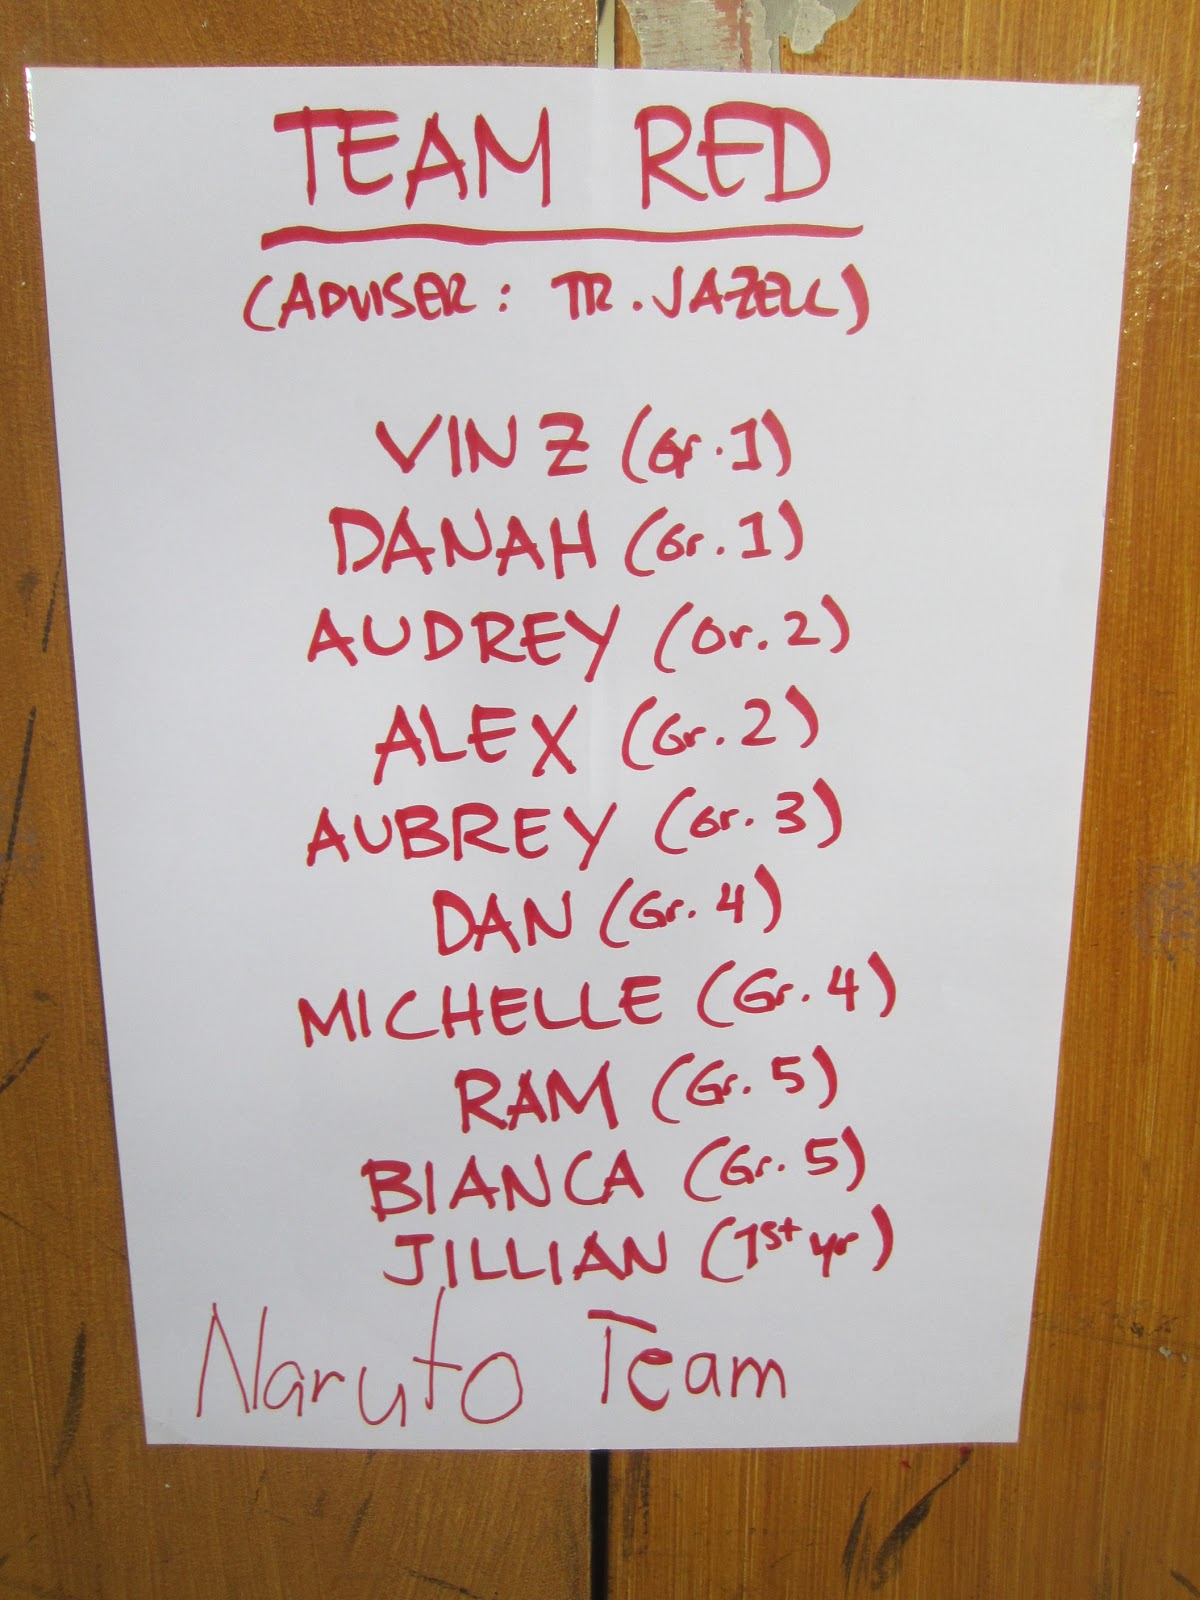 TEAM RED
(ADVISER: TR. JAZELL)
VINZ (Gr. 1)
DANAH (Gr. 1)
AUDREY (Gr. 2)
ALEX (Gr. 2)
AUBREY (Gr. 3)
DAN (Gr. 4)
MICHELLE (Gr. 4)
RAM (Gr. 5)
BIANCA (Gr. 5)
JILLIAN (1st yr)
Naruto Team